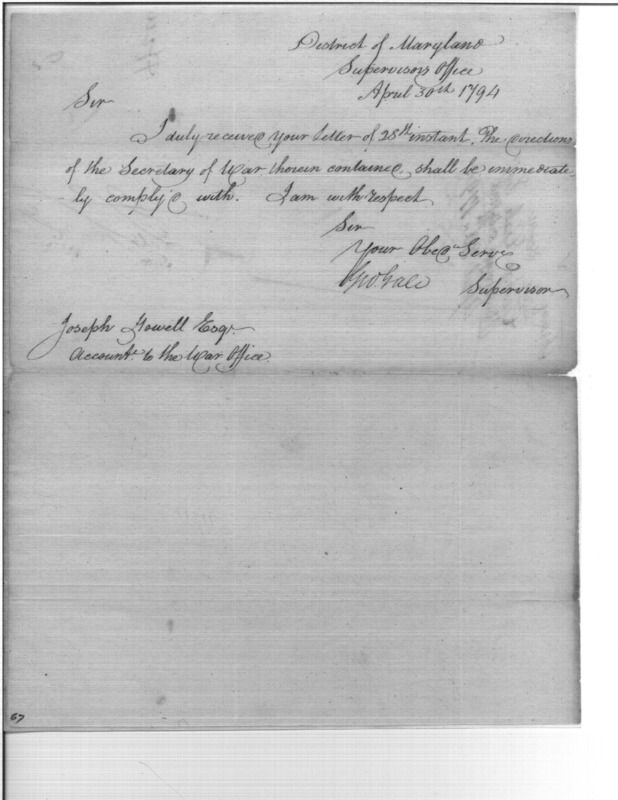 District of Maryland
Supervisors Office
April 30th 1794
Sir
I duly received your letter of 28th instant. The directions
of the Secretary of War therein contained, shall be immediate
-ly comply'd with. I am with respect
Sir
Your Obed. Serv.
Geo. Gale Supervisor
Joseph Howell Esqr.
Accountt. to the War Office.
67